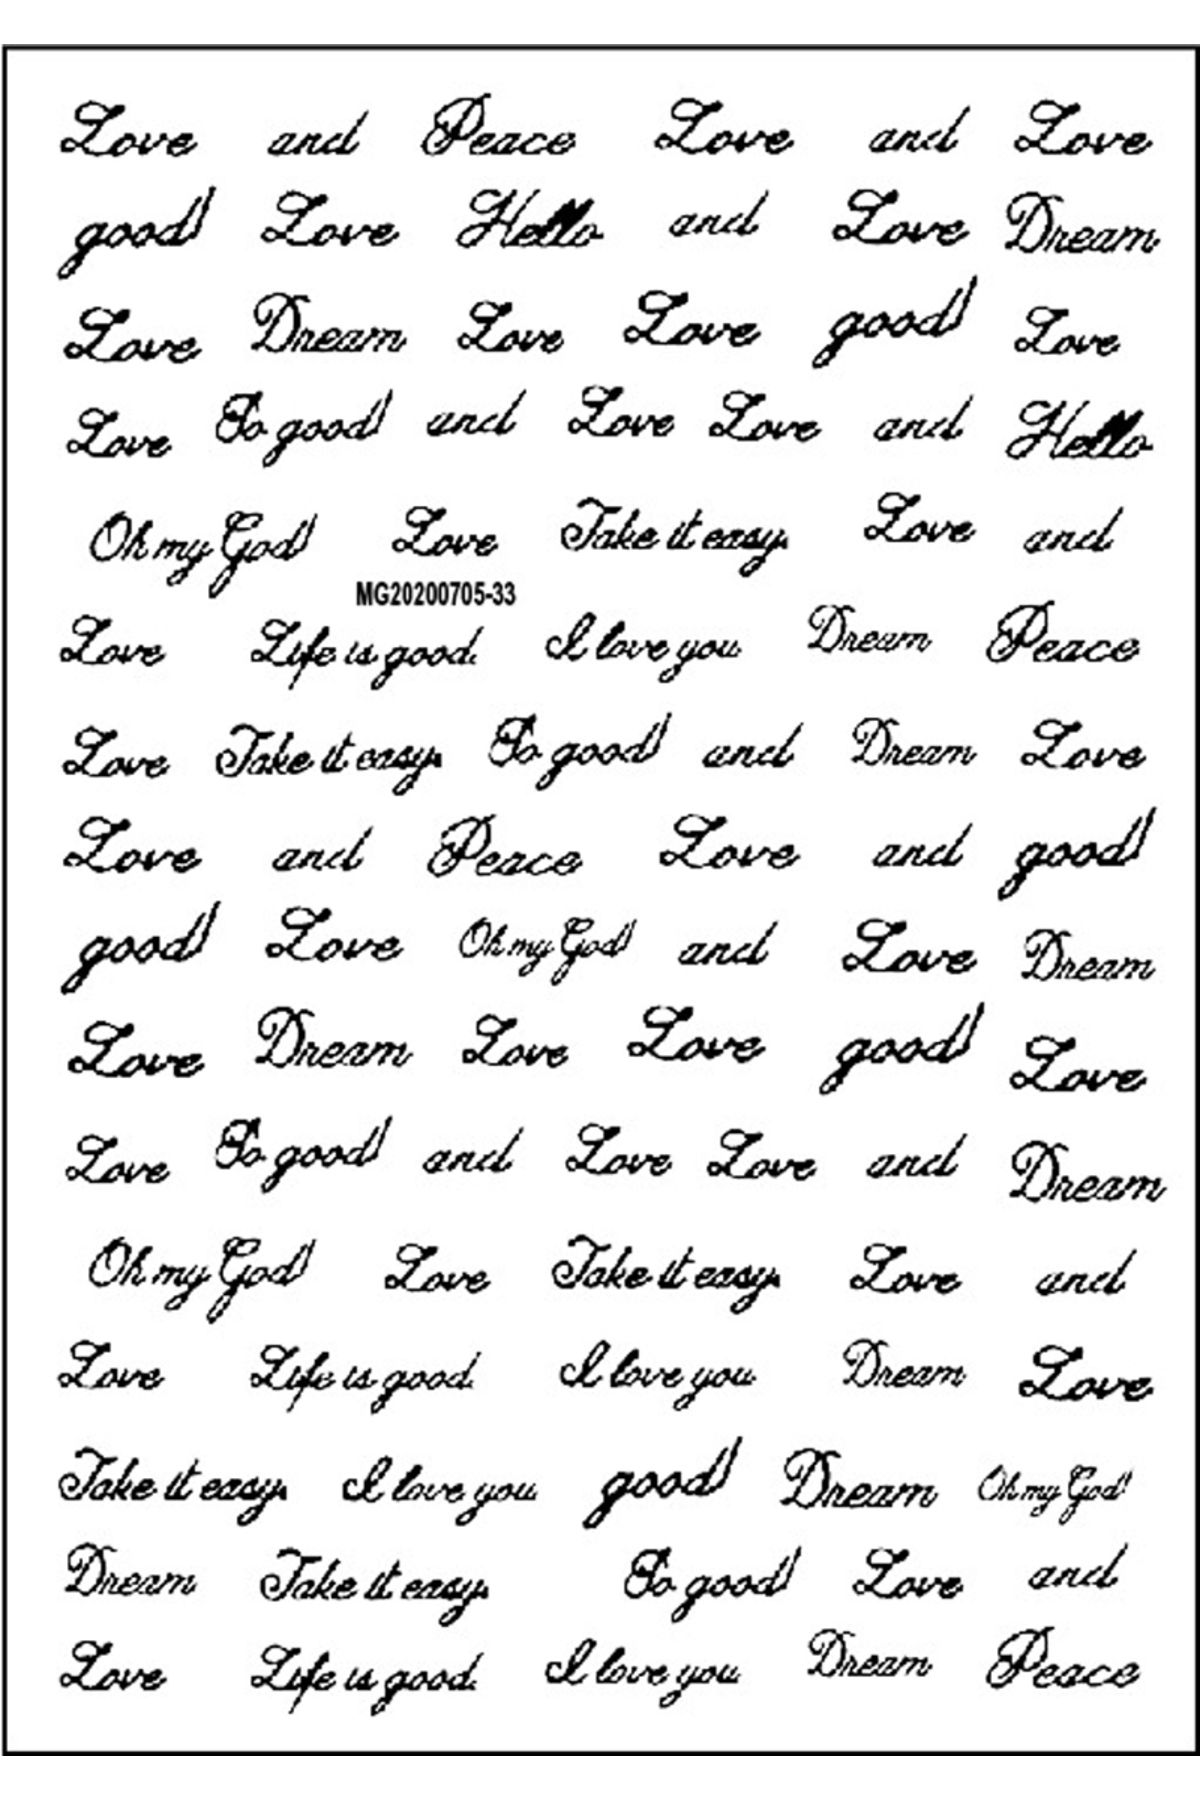 Love and Peace Love and Love
good! Love Hello and Love Dream
Love Dream Love Love good! Love
Love So good! and Love Love and Hello
Oh my God! Love Take it easy. Love and
MG20200705-33
Love Life is good. I love you Dream Peace
Love Take it easy. So good! and Dream Love
Love and Peace Love and good!
good! Love Oh my God! and Love Dream
Love Dream Love Love good! Love
Love So good! and Love Love and Dream
Oh my God! Love Take it easy. Love and
Love Life is good. I love you Dream Love
Take it easy. I love you good! Dream Oh my God!
Dream Take it easy. So good! Love and
Love Life is good. I love you Dream Peace